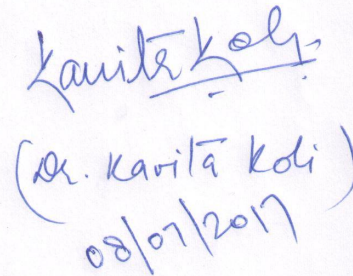 Kavita Koli
(Dr. Kavita Koli)
08/07/2017